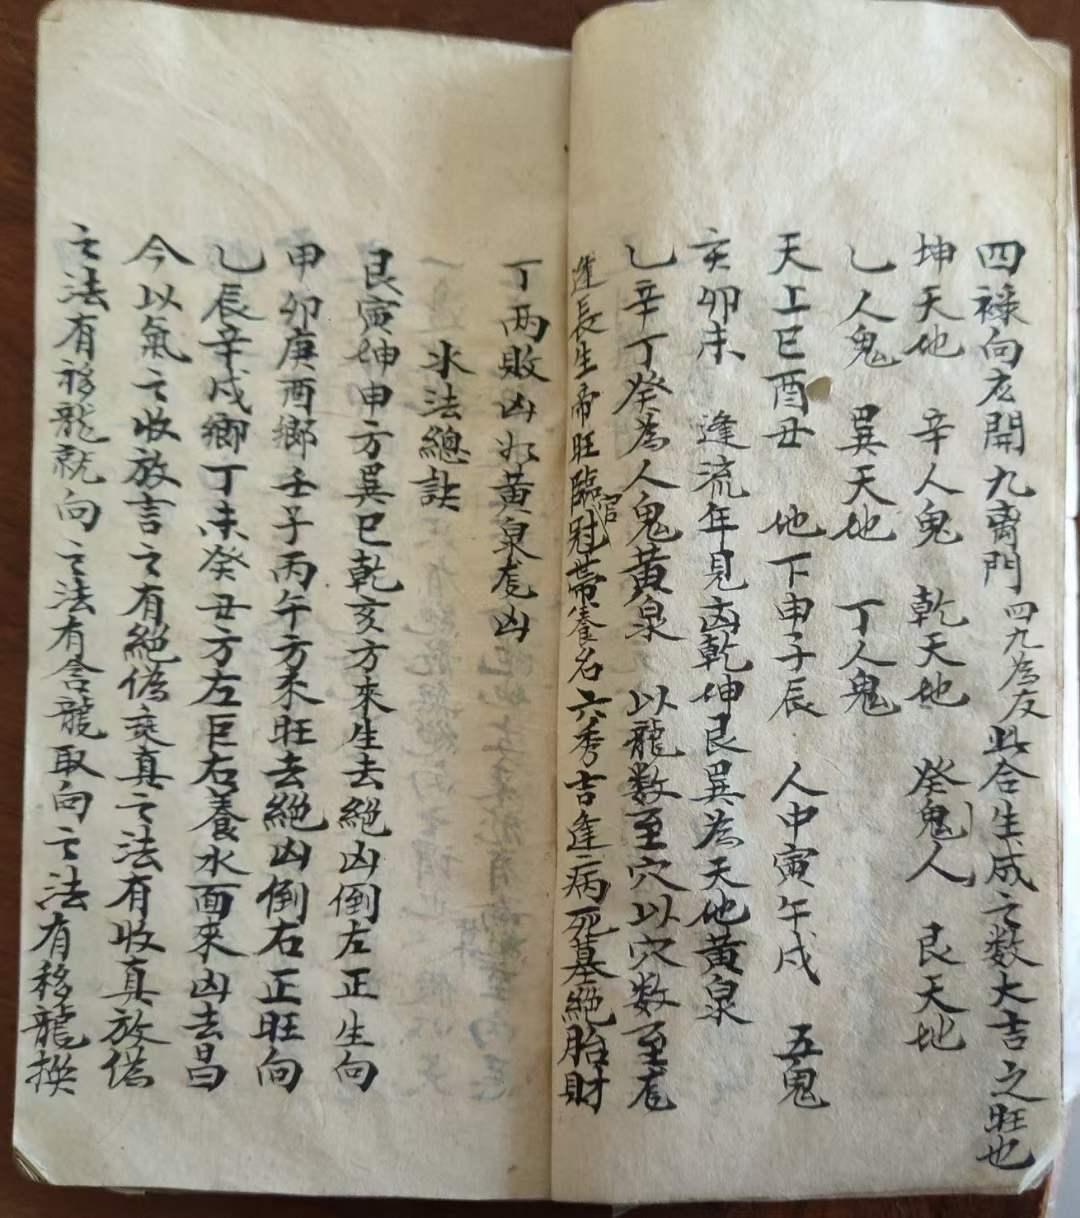 四祿向左開九离門 四九為友 此合生成之数大吉之旺也
坤天地 辛人鬼 乾天地 癸鬼人 艮天地
乙人鬼 巽天地 丁人鬼
天上巳酉丑 地下申子辰 人中寅午戌 五鬼
亥卯未 逢流年見凶乾坤艮巽為天地黃泉
乙辛丁癸為人鬼黃泉 以龍数至穴以穴数至
逢長生帝旺臨官冠帶養名六秀吉逢病死墓絕胎財
丁两敗凶如黃泉凶
水法總訣
艮寅坤申方巽巳乾亥方來生去絕凶倒左正生向
甲卯庚酉鄉壬子丙午方來旺去絕凶倒右正旺向
乙辰辛戌鄉丁未癸丑方左巨右養水面來凶去昌
今以氣之收放言之有絕偽乘真之法有收真放偽
之法有移龍就向之法有含龍取向之法有移龍換